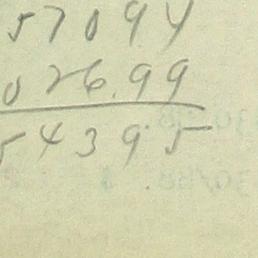 57094
026.99
54395